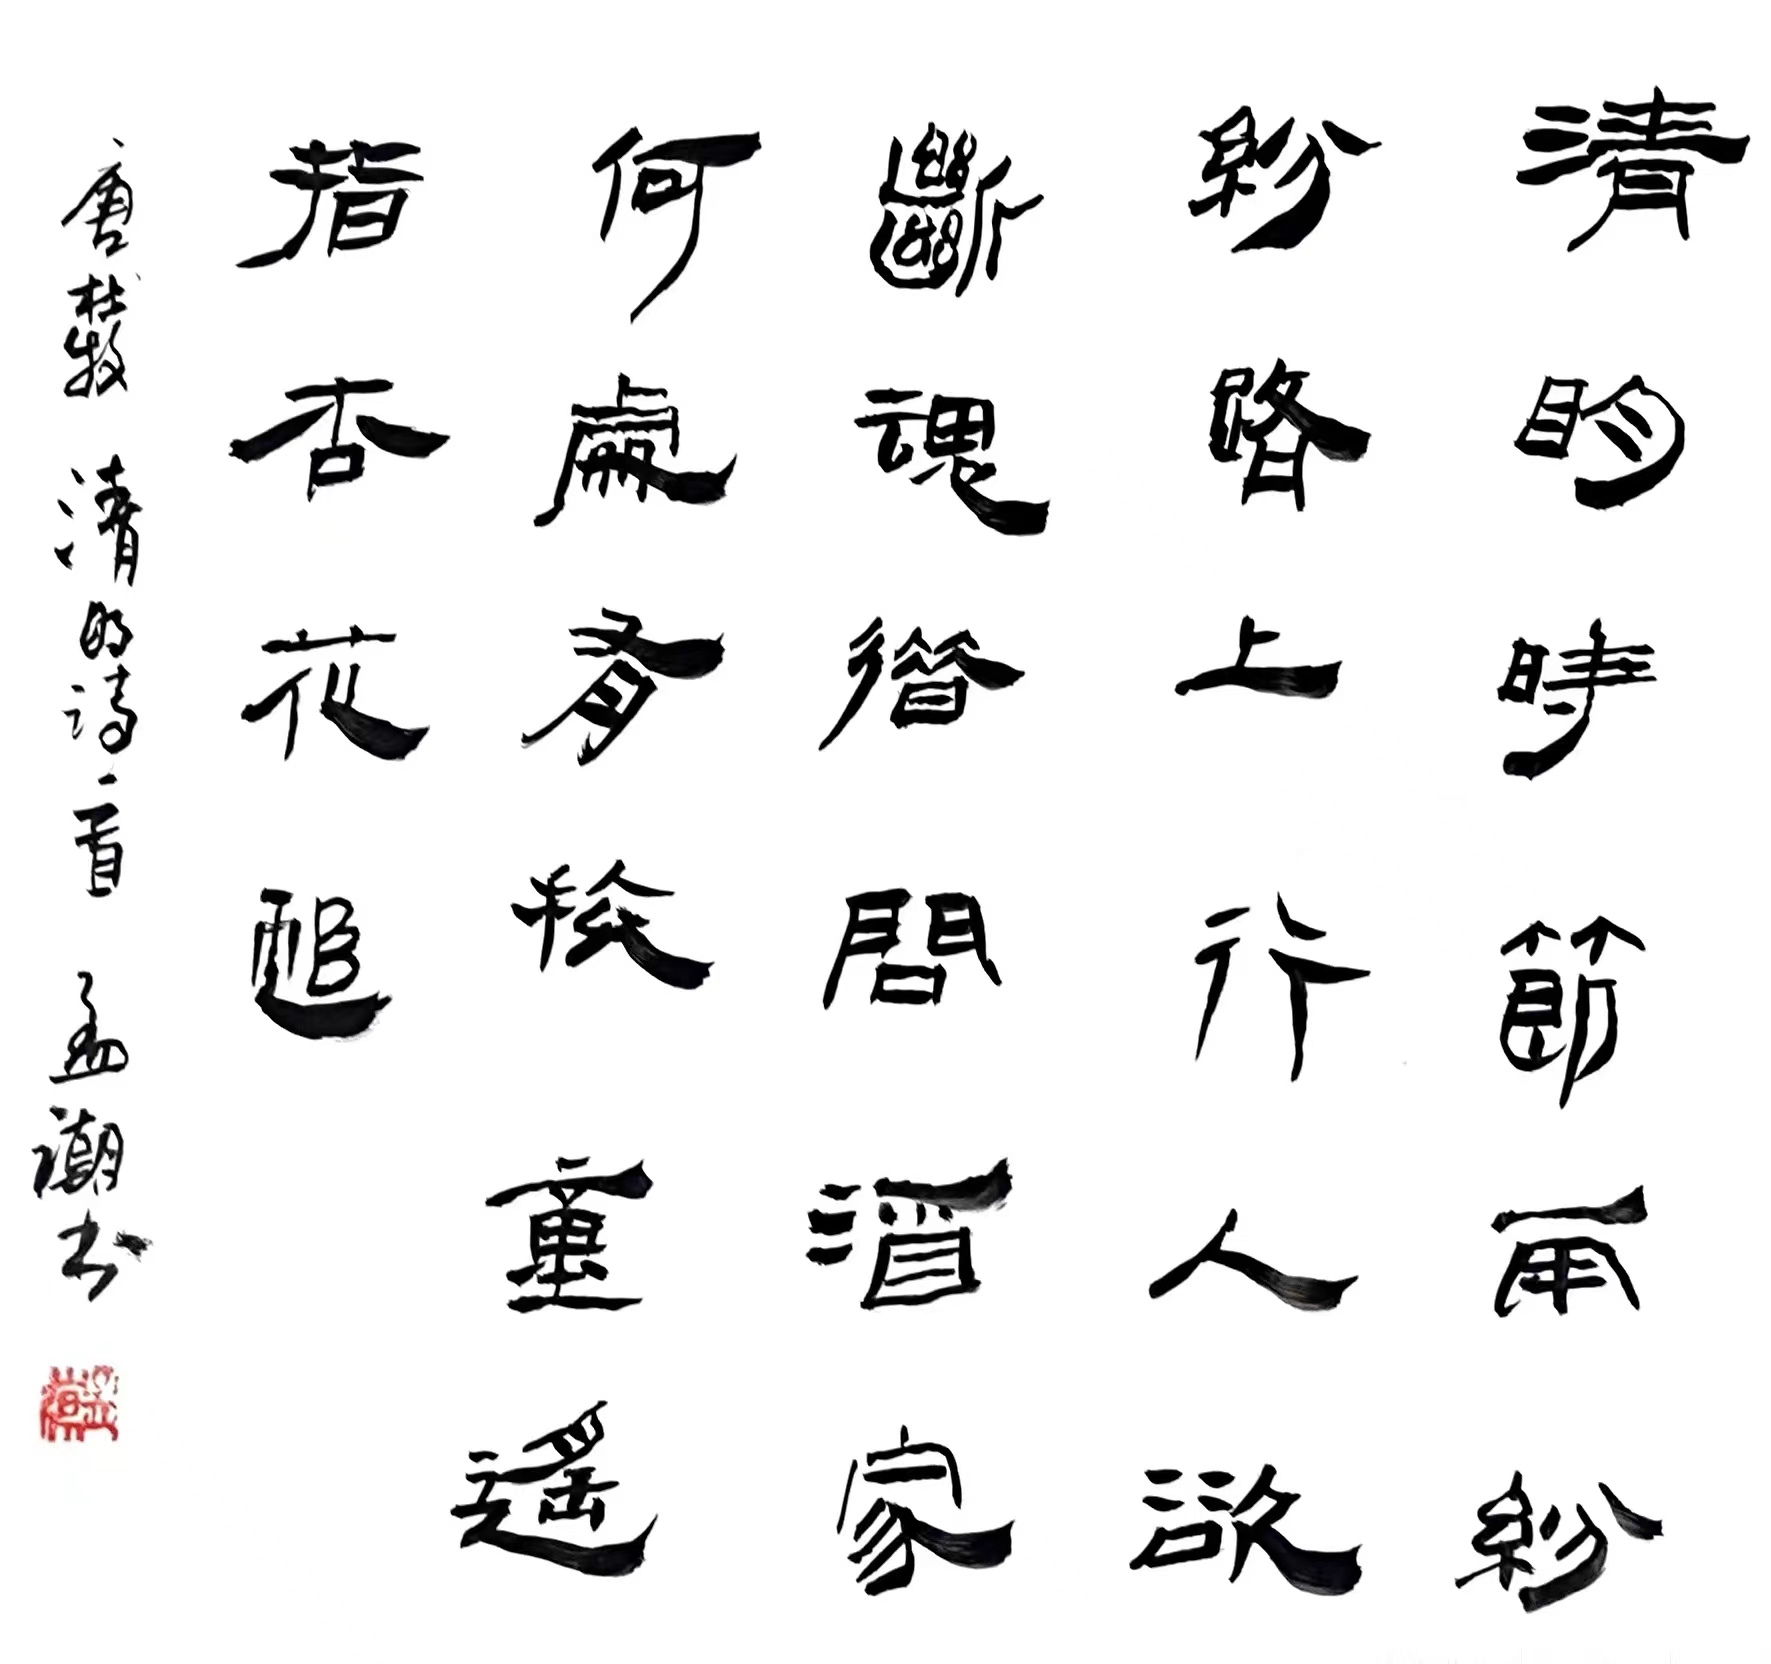 清明時節雨紛
紛路上行人欲
斷魂借問酒家
何處有牧童遙
指杏花邨
唐杜牧 清明詩一首 孟潮书